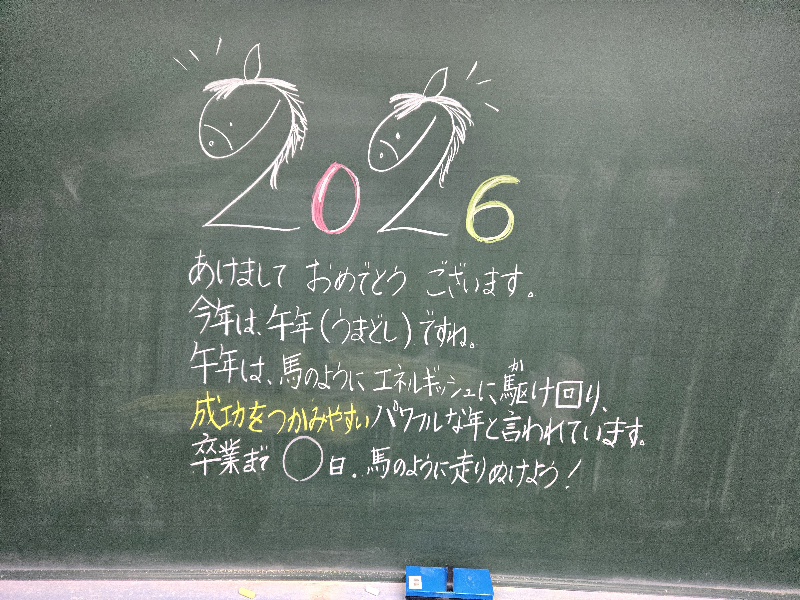 2026
あけまして おめでとう ございます。
今年は、午年(うまどし)ですね。
午年は、馬のように エネルギッシュに、駆け回り、
か
成功をつかみやすいパワフルな年と言われています。
卒業まで ◯日。馬のように走りぬけよう!